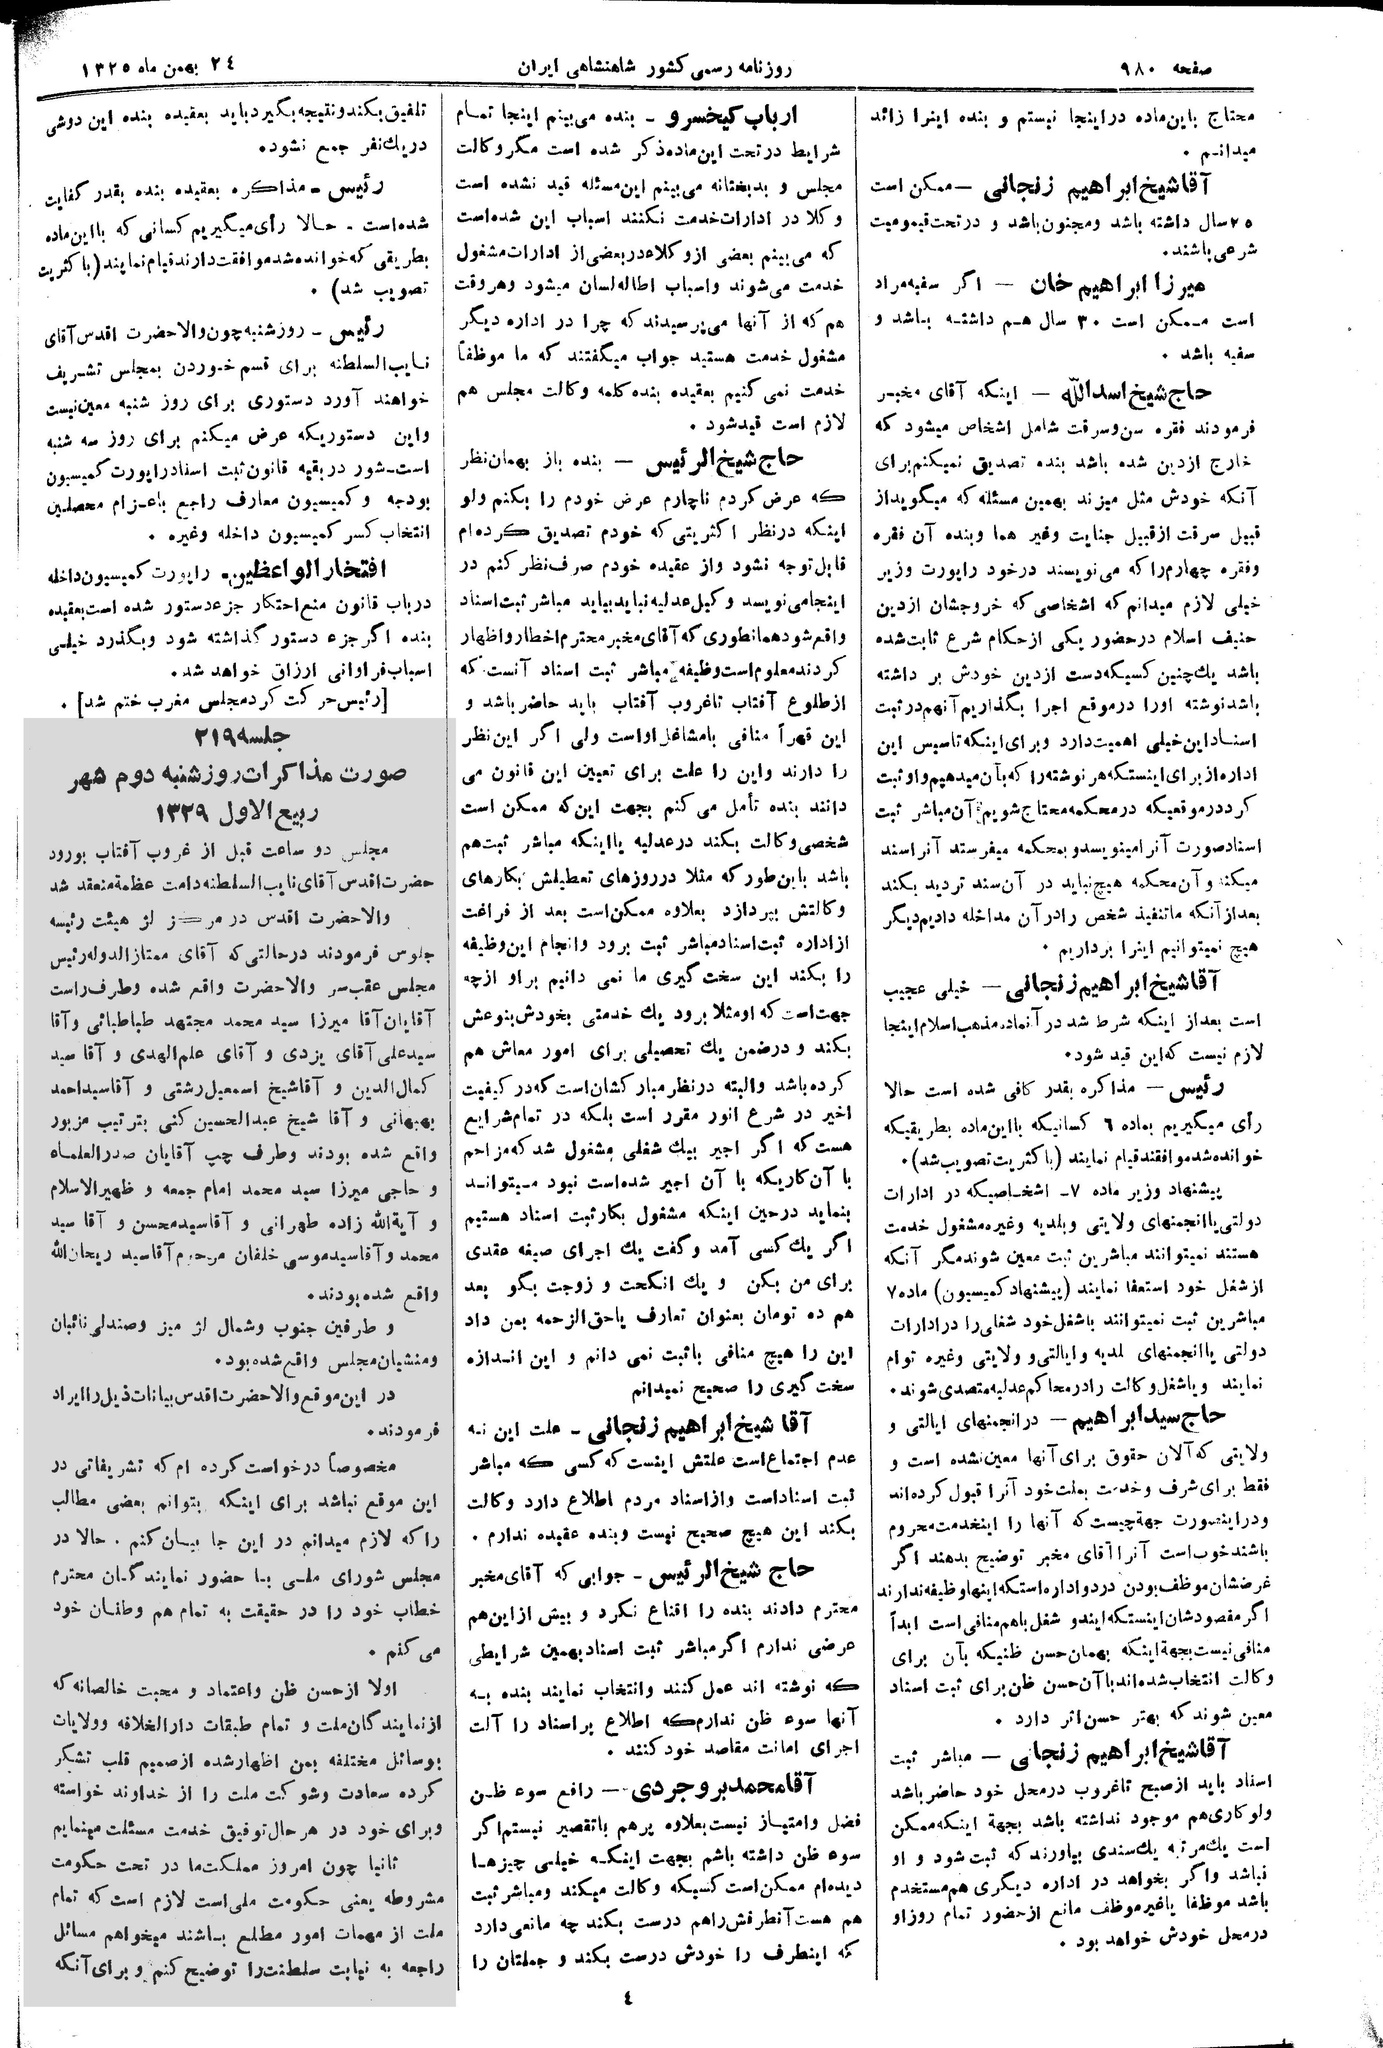 صفحه ۹۸۰
روزنامه رسمی کشور شاهنشاهی ایران
۲۴ بهمن ماه ۱۳۲۵
محتاج باین‌ماده دراینجا نیستم و بنده اینرا زائد
میدانم .
آقاشیخ ابراهیم زنجانی – ممکن است
۲۵ سال داشته باشد ومجنون‌باشد و درتحت‌قیمومیت
شرعی‌باشند.
میرزا ابراهیم خان – اگر سفیه‌مراد
است ممکن است ۳۰ سال هم داشته باشد و
سفیه باشد .
حاج شیخ اسدالله – اینکه آقای مخبر
فرمودند فقره سن‌وسرقت شامل اشخاص میشود که
خارج ازدین شده باشد بنده تصدیق نمیکنم‌برای
آنکه خودش مثل میزند بهمین مسئله که میگویداز
قبیل سرقت ازقبیل جنایت وغیر هما وبنده آن فقره
وفقره چهارم‌راکه می‌نویسند درخود راپورت وزیر
خیلی لازم میدانم‌که اشخاصی‌که خروجشان ازدین
حنیف اسلام درحضور یکی ازحکام شرع ثابت‌شده
باشد یك‌چنین کسیکه‌دست ازدین خودش بر داشته
باشدنوشته اورا درموقع اجرا بگذاریم‌آنهم‌درثبت
اسناداین‌خیلی اهمیت‌دارد وبرای‌اینکه‌تاسیس این
اداره‌از‌برای‌اینستکه‌هرنوشته‌راکه‌بآن‌میدهیم‌واوثبت
کرددرموقعیکه درمحکمه‌محتاج‌شویم‌آن‌مباشر ثبت
اسنادصورت آنرامینویسدوبمحکمه میفرستد آنراسند
میکندوآن‌محکمه هیچ‌نباید در آن‌سند تردید بکند
بعدازآنکه ماتنفیذ شخص رادرآن مداخله دادیم‌دیگر
هیچ نمیتوانیم اینرا برداریم .
آقاشیخ ابراهیم زنجانی – خیلی عجیب
است بعداز اینکه شرط شد درآنماده‌مذهب‌اسلام‌اینجا
لازم نیست که‌این قید شود.
رئیس – مذاکره بقدر کافی شده است حالا
رأی میگیریم بماده ۶ کسانیکه بااین‌ماده بطریقیکه
خوانده‌شدموافقندقیام نمایند (باکثریت‌تصویب‌شد).
پیشنهاد وزیر ماده ۷- اشخاصیکه در ادارات
دولتی‌یاانجمنهای ولایتی وبلدیه وغیره‌مشغول خدمت
هستند نمیتوانند مباشرین ثبت معین شوندمگر آنکه
ازشغل خود استعفا نمایند (پیشنهادکمیسیون) ماده۷
مباشرین ثبت نمیتوانند باشغل‌خود شغلی‌را درادارات
دولتی یاانجمنهای بلدیه وایالتی‌و ولایتی وغیره توام
نمایند ویاشغل وکالت رادرمحاکم‌عدلیه‌متصدی‌شوند.
حاج سید ابراهیم – درانجمنهای ایالتی و
ولایتی که‌آلان حقوق برای‌آنها معین‌نشده است و
فقط برای‌شرف وخدمت بملت‌خود آنرا قبول کرده‌اند
ودراینصورت جهةچیست‌که آنها را ازاینخدمت‌محروم
باشندخوب‌است آنراآقای مخبر توضیح بدهند اگر
غرضشان‌موظف‌بودن دردواداره‌استکه اینهاوظیفه‌ندارند
اگرمقصودشان‌اینستکه‌ایندو شغل‌باهم‌منافی‌است ابداً
منافی‌نیست‌بجهةاینکه بهمان‌حسن ظنیکه‌بآن برای
وکالت انتخاب‌شده‌اندباآن‌حسن ظن‌برای ثبت اسناد
معین شوندکه بهتر حسن‌اثر دارد .
آقاشیخ ابراهیم زنجانی – مباشر ثبت
اسناد باید ازصبح تاغروب درمحل خود حاضرباشد
ولوکاری‌هم موجود نداشته باشد بجهة اینکه‌ممکن
است یك‌مرتبه یك‌سندی بیاورندکه ثبت‌شود و او
نباشد واگر بخواهد در اداره دیگری هم‌مستخدم
باشد موظفا یاغیرموظف مانع ازحضور تمام روزاو
درمحل خودش خواهد بود .
ارباب کیخسرو – بنده می‌بینم اینجا تمام
شرایط درتحت این‌ماده‌ذکر شده است مگروکالت
مجلس و بدبختانه می‌بینم این‌مسئله قید نشده است
وکلا در ادارات‌خدمت نکنند اسباب این شده‌است
که می‌بینم بعضی ازوکلاءدربعضی‌از ادارات‌مشغول
خدمت می‌شوند واسباب اطاله‌لسان میشود وهروقت
هم که از آنها می‌پرسیدند که چرا در اداره دیگر
مشغول خدمت هستید جواب میگفتند که ما موظفاً
خدمت نمی‌کنیم بعقیده بنده‌کلمه وکالت مجلس هم
لازم است قیدشود .
حاج شیخ الرئیس – بنده باز بهمان‌نظر
که عرض‌کردم ناچارم عرض خودم را بکنم ولو
اینکه درنظر اکثریتی‌که خودم تصدیق کرده‌ام
قابل‌توجه نشود واز عقیده خودم صرف‌نظر کنم در
اینجامی‌نویسد وکیل‌عدلیه‌نبایدبیاید مباشر ثبت‌اسناد
واقع‌شودهمانطوری‌که‌آقای‌مخبرمحترم‌اخطارواظهار
کردندمعلوم‌است‌وظیفه مباشر ثبت اسناد آنست‌که
ازطلوع آفتاب تاغروب آفتاب باید حاضرباشد و
این قهراً منافی بامشاغل‌اواست ولی اگر این‌نظر
را دارند واین را علت برای تعیین این قانون می
دانند بنده تأمل می‌کنم بجهت این‌که ممکن است
شخصی‌وکالت بکند درعدلیه یااینکه مباشر ثبت‌هم
باشد باین‌طور که مثلا درروزهای تعطیلش بکارهای
وکالتش بپردازد بعلاوه ممکن‌است بعد از فراغت
ازاداره ثبت‌اسنادمباشر ثبت برود وانجام این‌وظیفه
را بکند این سخت‌گیری ما نمی دانیم براو ازچه
جهت‌است که‌اومثلا برود یك خدمتی بخودش‌بنوعش
بکند و درضمن یك تحصیلی برای امور معاش هم
کرده‌باشد والبته درنظرمبارکشان‌است‌که‌درکیفیت
اخیر در شرع انور مقرر است بلکه در تمام‌شرایع
هست‌که اگر اجیر بیك شغلی مشغول شدکه‌مزاحم
با آن‌کاریکه با آن اجیر شده‌است نبود میتواند
بنماید درحین اینکه مشغول بکارثبت اسناد هستیم
اگر یك کسی آمد وگفت یك اجرای صیغه عقدی
برای من بکن و یك انکحت و زوجت بگو بعد
هم ده تومان بعنوان تعارف یاحق‌الزحمه بمن داد
این را هیچ منافی باثبت نمی دانم و این اندازه
سخت گیری را صحیح نمیدانم
آقا شیخ ابراهیم زنجانی – علت این نه
عدم اجتماع‌است علتش اینست که‌کسی که مباشر
ثبت اسناداست وازاسناد مردم اطلاع دارد وکالت
بکند این هیچ صحیح نیست وبنده عقیده ندارم .
حاج شیخ الرئیس – جوابی که آقای‌مخبر
محترم دادند بنده را اقناع نکرد و بیش ازاین‌هم
عرضی ندارم اگرمباشر ثبت اسنادبهمین شرایطی
که نوشته اند عمل‌کنند وانتخاب نمایند بنده به
آنها سوء ظن ندارم‌که اطلاع براسناد را آلت
اجرای امانت مقاصد خودکنند .
آقامحمد بروجردی – رافع سوء ظن
فضل وامتیاز نیست‌بعلاوه پرهم باتقصیر نیستم‌اگر
سوء ظن داشته باشم بجهت اینکه خیلی چیزها
دیده‌ام ممکن‌است کسیکه وکالت میکند ومباشرثبت
هم هست‌آنطرفش‌راهم درست بکند چه مانعی‌دارد
که اینطرف را خودش درست بکند و جملتان را
تلفیق‌بکندونتیجه‌بگیردباید بعقیده بنده این دوشی
دریك‌نفر جمع نشود.
رئیس – مذاکره بعقیده بنده بقدر کفایت
شده‌است - حالا رأی‌میگیریم کسانی که بااین‌ماده
بطریقی که‌خوانده‌شدموافقت‌دارندقیام‌نمایند(باکثریت
تصویب شد) .
رئیس – روزشنبه‌چون‌والاحضرت اقدس‌آقای
نایب‌السلطنه برای قسم خوردن بمجلس تشریف
خواهند آورد دستوری برای روز شنبه معین‌نیست
واین دستوریکه عرض میکنم برای روز سه شنبه
است‌-شور دربقیه قانون‌ثبت اسنادراپورت‌کمیسیون
بودجه وکمیسیون معارف راجع باعزام محصلین
انتخاب کسر کمیسیون داخله وغیره .
افتخار الواعظین – راپورت کمیسیون‌داخله
درباب قانون منع‌احتکار جزءدستور شده است‌بعقیده
بنده اگرجزء دستور گذاشته شود وبگذرد خیلی
اسباب‌فراوانی ارزاق خواهد شد.
[رئیس‌حرکت کردمجلس مغرب ختم شد] .
جلسه ۲۱۹
صورت مذاکرات روزشنبه دوم شهر
ربیع الاول ۱۳۲۹
مجلس دو ساعت قبل از غروب آفتاب بورود
حضرت‌اقدس آقای‌نایب‌السلطنه‌دامت عظمةمنعقد شد
والاحضرت اقدس در مرکز از هیئت رئیسه
جلوس فرمودند درحالتی‌که آقای ممتازالدوله‌رئیس
مجلس عقب‌سر والاحضرت واقع شده وطرف‌راست
آقایان‌آقا میرزا سید محمد مجتهد طباطبائی وآقا
سیدعلی‌آقای یزدی و آقای علم‌الهدی و آقا سید
کمال‌الدین و آقاشیخ اسمعیل‌رشتی و آقاسیداحمد
بهبهانی و آقا شیخ عبدالحسین کنی بترتیب مزبور
واقع شده بودند وطرف چپ آقایان صدرالعلماء
و حاجی میرزا سید محمد امام جمعه و ظهیرالاسلام
و آیةالله زاده طهرانی و آقاسیدمحسن و آقا سید
محمد وآقاسیدموسی خلفان مرحوم‌آقاسید ریحان‌الله
واقع شده‌بودند.
و طرفین جنوب وشمال از میز وصندلی‌نائبان
ومنشیان‌مجلس واقع‌شده‌بود.
در این‌موقع‌والاحضرت‌اقدس‌بیانات‌ذیل‌راایراد
فرمودند.
مخصوصاً درخواست‌کرده ام‌که تشریفاتی در
این موقع نباشد برای اینکه بتوانم بعضی مطالب
راکه لازم میدانم در این جا بیان‌کنم . حالا در
مجلس شورای ملی با حضور نمایندگان محترم
خطاب خود را در حقیقت به تمام هم وطنان خود
می‌کنم .
اولا ازحسن ظن واعتماد و محبت خالصانه‌که
ازنمایندگان‌ملت و تمام طبقات دارالخلافه وولایات
بوسائل مختلفه بمن اظهارشده ازصمیم قلب تشکر
کرده سعادت وشوکت ملت را از خداوند خواسته
وبرای خود در هرحال‌توفیق خدمت مسئلت مینمایم
ثانیا چون امروز مملکت‌ما در تحت حکومت
مشروطه یعنی حکومت ملی‌است لازم است‌که تمام
ملت از مهمات امور مطلع باشند میخواهم مسائل
راجعه به نیابت سلطنت‌را توضیح‌کنم و برای‌آنکه
٤